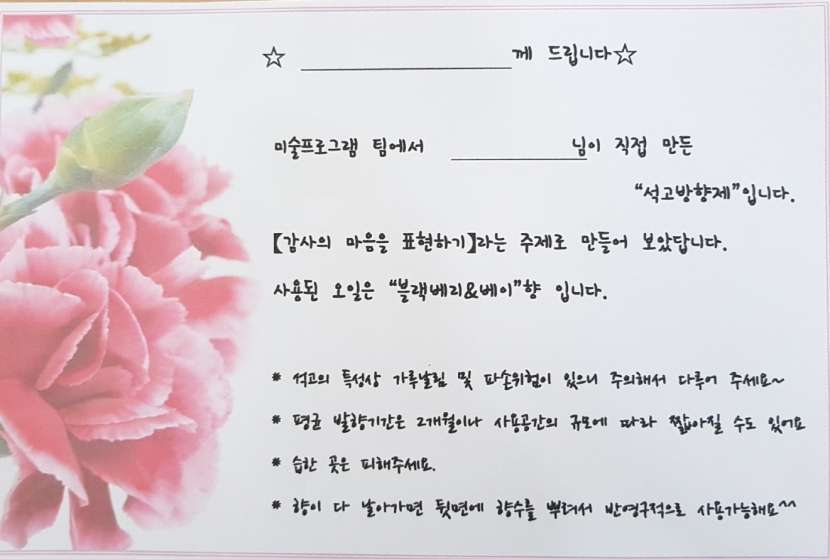 ☆ ____________께 드립니다☆
미술프로그램 팀에서 ________님이 직접 만든
“석고방향제”입니다.
【감사의 마음을 표현하기】라는 주제로 만들어 보았답니다.
사용된 오일은 “블랙베리&베이”향 입니다.
* 석고의 특성상 가루날림 및 파손위험이 있으니 주의해서 다루어 주세요~
* 평균 발향기간은 2개월이나 사용공간의 규모에 따라 짧아질 수도 있어요
* 습한 곳은 피해주세요.
* 향이 다 날아가면 뒷면에 향수를 뿌려서 반영구적으로 사용가능해요^^